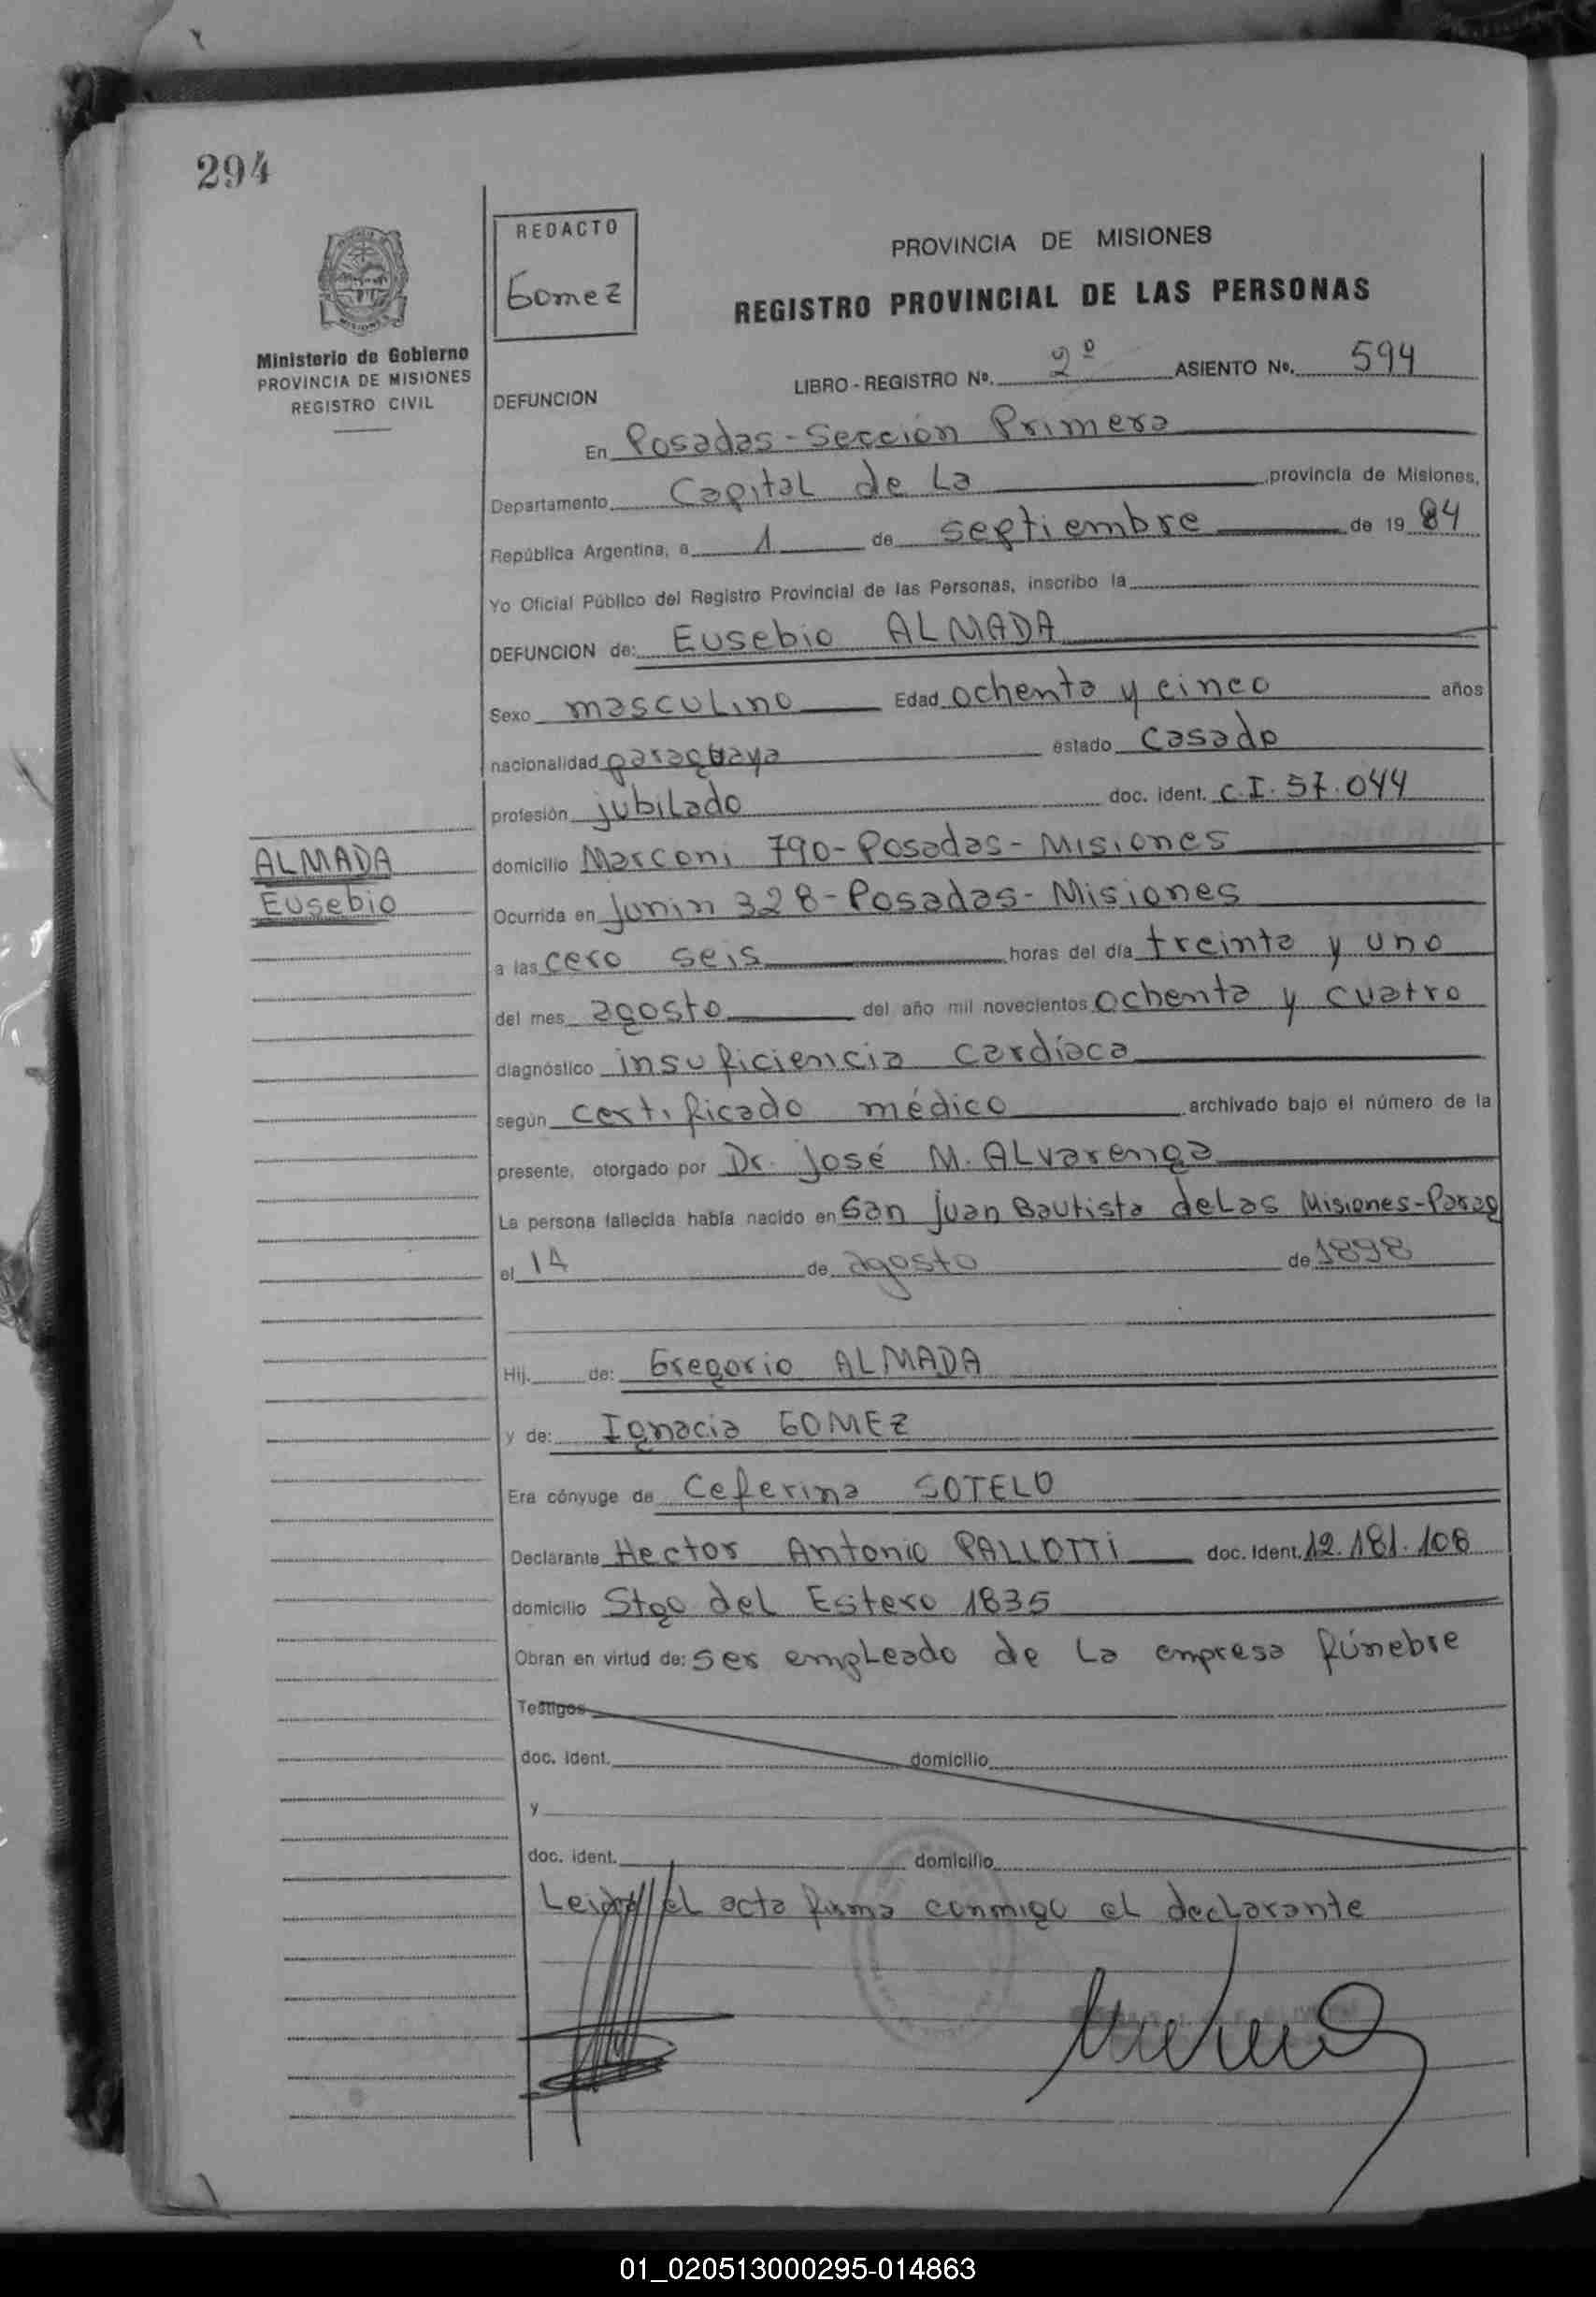 294
REDACTO
Gomez
Ministerio de Gobierno
PROVINCIA DE MISIONES
REGISTRO CIVIL
PROVINCIA DE MISIONES
REGISTRO PROVINCIAL DE LAS PERSONAS
LIBRO - REGISTRO Nº. 2º ASIENTO Nº. 594
DEFUNCION
En Posadas - Sección Primera
Departamento Capital de La provincia de Misiones,
República Argentina, a 1 de septiembre de 19 84
Yo Oficial Público del Registro Provincial de las Personas, inscribo la
DEFUNCION de: Eusebio ALMADA
Sexo masculino Edad ochenta y cinco años
nacionalidad paraguaya estado casado
profesión jubilado doc. ident. C.I. 57.044
ALMADA
Eusebio
domicilio Marconi 790 - Posadas - Misiones
Ocurrida en Junin 328 - Posadas - Misiones
a las cero seis horas del día treinta y uno
del mes agosto del año mil novecientos ochenta y cuatro
diagnóstico insuficiencia cardíaca
según certificado médico archivado bajo el número de la
presente, otorgado por Dr. José M. ALvarenga
La persona fallecida había nacido en San Juan Bautista de Las Misiones - Parag
el 14 de agosto de 1898
Hij. de: Gregorio ALMADA
y de: Ignacia GOMEZ
Era cónyuge de Ceferina SOTELO
Declarante Hector Antonio PALLOTTI doc. Ident. 12.181.108
domicilio Stgo del Estero 1835
Obran en virtud de: ser empleado de la empresa fúnebre
Testigos
doc. ident. domicilio
y
doc. ident. domicilio
Leida el acta firma conmigo el declarante
01_020513000295-014863